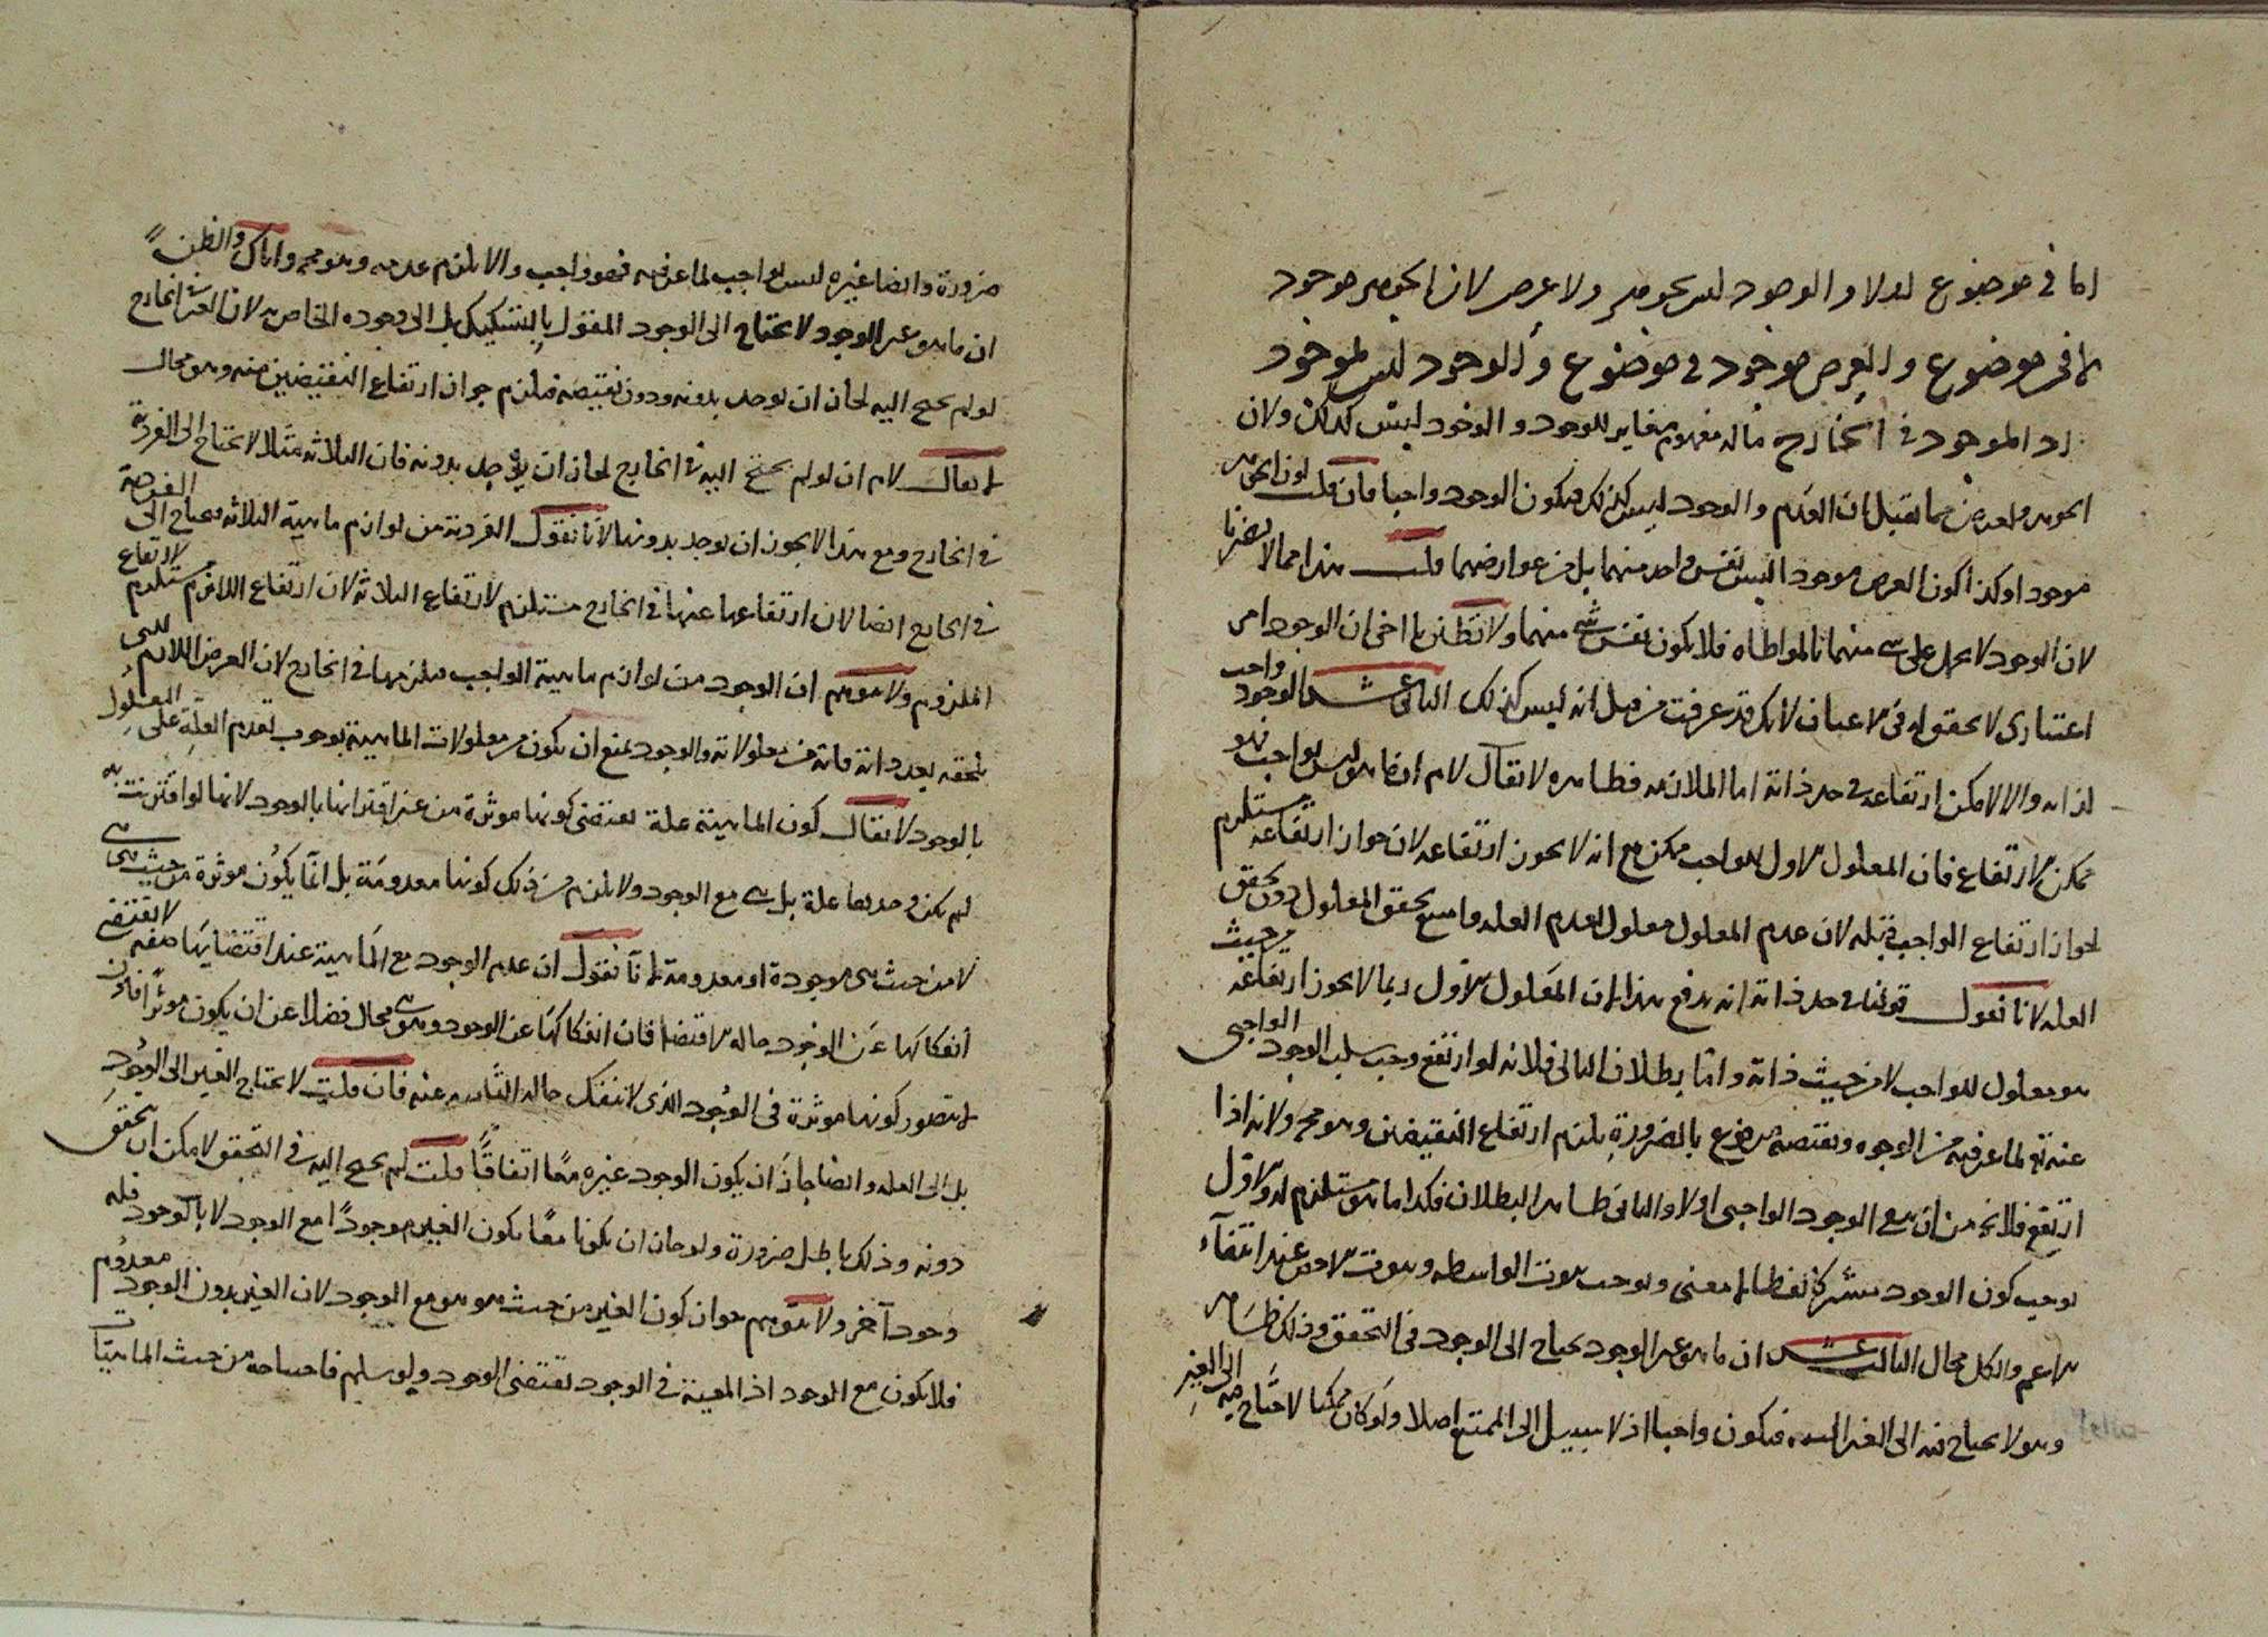 اما في موضوع اولا والوجود ليس بجوهر ولا عرض لان الجوهر موجود
لا في موضوع والعرض موجود في موضوع والوجود ليس بموجود
اذ الموجود في الخارج ماله مفهوم مغاير للوجود والوجود ليس كذلك ولان
الجوهر والعرض مما يقبلان العدم والوجود ليس كذلك فيكون الوجود واجبا فان قلت كون الجوهر
موجودا وكذا كون العرض موجودا ليس نفس واحد منهما بل من عوارضهما قلت هذا مما لا يضرنا
لان الوجود لا يحمل على شي منهما بالمواطاه فلا يكون نفس شي منهما ولا تظنن يا اخي ان الوجود امر
اعتباري لا تحقق له في الاعيان لانك قد عرفت من قبل انه ليس كذلك الثاني عشر الوجود واجب
لذاته والا لامكن ارتفاعه في حد ذاته اما الملازمه فظاهره لا يقال لا م ان ما هو ليس بواجب فهو
ممكن الارتفاع فان المعلول الاول للواجب ممكن مع انه لا يجوز ارتفاعه لان جواز ارتفاعه مستلزم
لجواز ارتفاع الواجب قبله لان عدم المعلول معلول لعدم العله وامتنع تحقق المعلول دون تحقق
العله لانا نقول قولنا في حد ذاته انه يدفع هذا لان المعلول الاول ربما لا يجوز ارتفاعه من حيث
هو معلول للواجب لا من حيث ذاته واما بطلان التالي فلانه لو ارتفع وجب سلب الوجود الواجبي
عنه تع لما عرفته من الوجوه ونقيضه مرفوع بالضرورة يلزم ارتفاع النقيضين وهو مح ولانه اذا
ارتفع فلا يخ من ان يبقى الوجود الواجبي اولا والثاني ظاهر البطلان فكذا ما هو مستلزم له والاول
يوجب كون الوجود مشتركا لفظا لا معنى ويوجب ثبوت الواسطه وثبوت الاخص عند انتفاء
الاعم والكل محال الثالث عشر ان ما هو غير الوجود يحتاج الى الوجود في التحقق وذلك ظاهر
وهو لا يحتاج فيه الى الغير البته فيكون واجبا اذ لا سبيل الى الممتنع اصلا ولو كان ممكنا لاحتاج فيه الى الغير
ضرورة وايضا غيره ليس بواجب لما عرفته فهو واجب والا يلزم عدمه وهو مح واياك والظن
ان ما هو غير الوجود لا يحتاج الى الوجود المقول بالتشكيك بل الى وجوده الخاص به لان الغير في الخارج
لو لم يحتج اليه لجاز ان يوجد بدونه ودون نقيضه فيلزم جواز ارتفاع النقيضين منه وهو محال
لا يقال لا م ان لو لم يحتج اليه في الخارج لجاز ان يوجد بدونه فان الثلاثه مثلا لا يحتاج الى الفردية
في الخارج ومع هذا لا يجوز ان يوجد بدونها لانا نقول الفردية من لوازم ماهية الثلاثه ويحتاج الى الفردية
في الخارج ايضا لان ارتفاعها عنها في الخارج مستلزم لارتفاع الثلاثه لان ارتفاع اللازم مستلزم لارتفاع
الملزوم ولا يتوهم ان الوجود من لوازم ماهية الواجب فيلزمها في الخارج لان العرض اللازم للشي
يلحقه بعد ذاته فانه من معلولاته والوجود يمتنع ان يكون من معلولات الماهية بوجوب تقدم العلة على المعلول
بالوجود لا يقال كون الماهية علة يقتضي كونها موثرة من غير اقترانها بالوجود لانها لو اقترنت به
لم يكن وحدها علة بل هي مع الوجود ولا يلزم من ذلك كونها معدومة بل انما يكون موثرة من حيث هي هي
لا من حيث هي موجودة او معدومة لانا نقول ان عدم الوجود مع الماهية عند اقتضايها صفه لا يقتضي
انفكاكها عن الوجود حاله الاقتضا فان انفكاكها عن الوجود وهي هي محال فضلا عن ان يكون موثرا فاذن
لا يتصور كونها موثرة في الوجود الذي لا تنفك حاله التاثير عنه فان قلت لا يحتاج الغير الى الوجود
بل الى العله وايضا جاز ان يكون الوجود غيره معا اتفاقا قلت لو لم يحتج اليه في التحقق لامكن ان يتحقق
دونه وذلك باطل ضرورة ولو جاز ان يكونا معا يكون الغير موجودا مع الوجود لا بالوجود فله
وجود آخر ولا يتوهم جواز كون الغير من حيث هو هو مع الوجود لان الغير بدون الوجود معدوم
فلا يكون مع الوجود اذ المعية في الوجود تقتضي الوجود ولو سلم فاحتياجه من حيث الماهيات